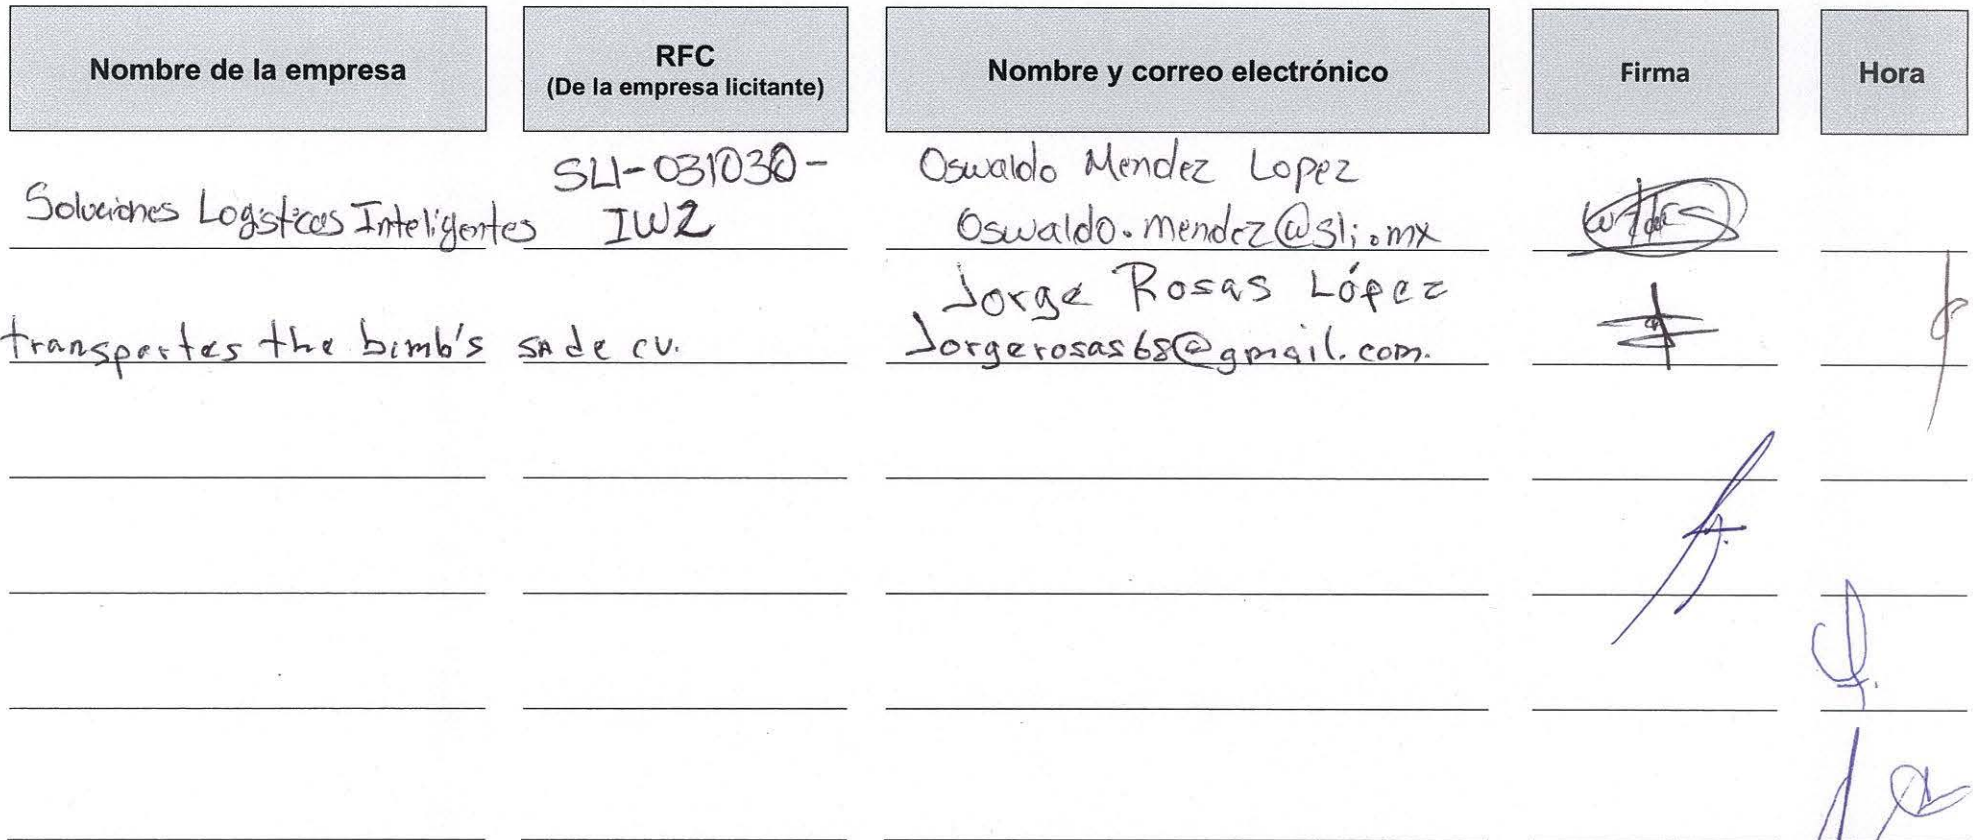 Nombre de la empresa
RFC
(De la empresa licitante)
Nombre y correo electrónico
Firma
Hora
Soluciones Logísticas Inteligentes
SLI-031030-
IW2
Oswaldo Mendez Lopez
Oswaldo.mendez@sli.mx
transportes the bimb's sa de cv.
Jorge Rosas López
Jorgerosas68@gmail.com.